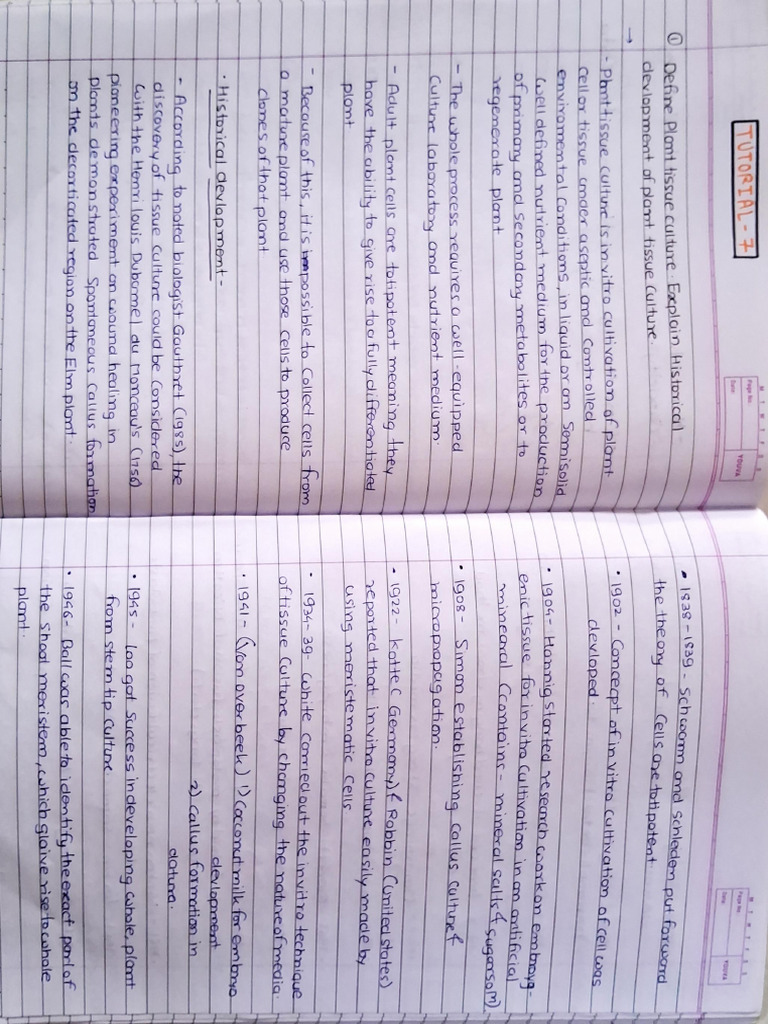 TUTORIAL - 7
M T W T F S S
Page No.:
Date:
YOUVA
① Define Plant tissue culture. Explain Historical
devlopment of plant tissue culture.
→
- Plant tissue culture is in vitro cultivation of plant
cell or tissue under aseptic and controlled
enviramental conditions, in liquid or on Semisolid
well defined nutrient medium for the production
of primary and secondary metabolites or to
regenerate plant
- The whole process requires a well-equipped
Culture laboratory and nutrient medium.
- Adult plant cells are totipotent meaning they
have the ability to give rise to a fully differentiated
plant
- Because of this, it is possible to collect cells from
a mature plant and use those cells to produce
clones of that plant
• Historical devlopment -
- According to noted biologist Gauthret (1985), the
discovery of tissue culture could be considered
with the Henri louis Duhamel du Monceau's (1756)
pioneering experiment on wound healing in
plants demonstrated Spontaneous callus formation
on the decorticated region on the Elm plant.
M T W T F S S
Page No.:
Date:
YOUVA
• 1838 - 1839 - Schwann and Schleden put forward
the theory of cells are totipotent
• 1902 - Concecpt of in vitro cultivation of cell was
devloped.
• 1904 - Hannig started research work on embryog-
enic tissue for in vitro cultivation in an antificial
mineral (contains - mineral salts & sugarsoln)
• 1908 - Simon establishing callus culture &
micropropagation.
• 1922 - Kotte (Germany) & Robbin (united states)
reported that in vitro culture easily made by
using meristematic cells
• 1934-39 - White carried out the in vitro technique
of tissue culture by changing the nature of media.
• 1941 - (Van overbeek) 1) Coconut milk for embryo
devlopment
2) callus formation in
datura.
• 1945 - Loo got success in developing whole, plant
from stem tip culture
• 1946 - Ball was able to identify the exact part of
the shoot meristem, which glaive rise to whole
plant.